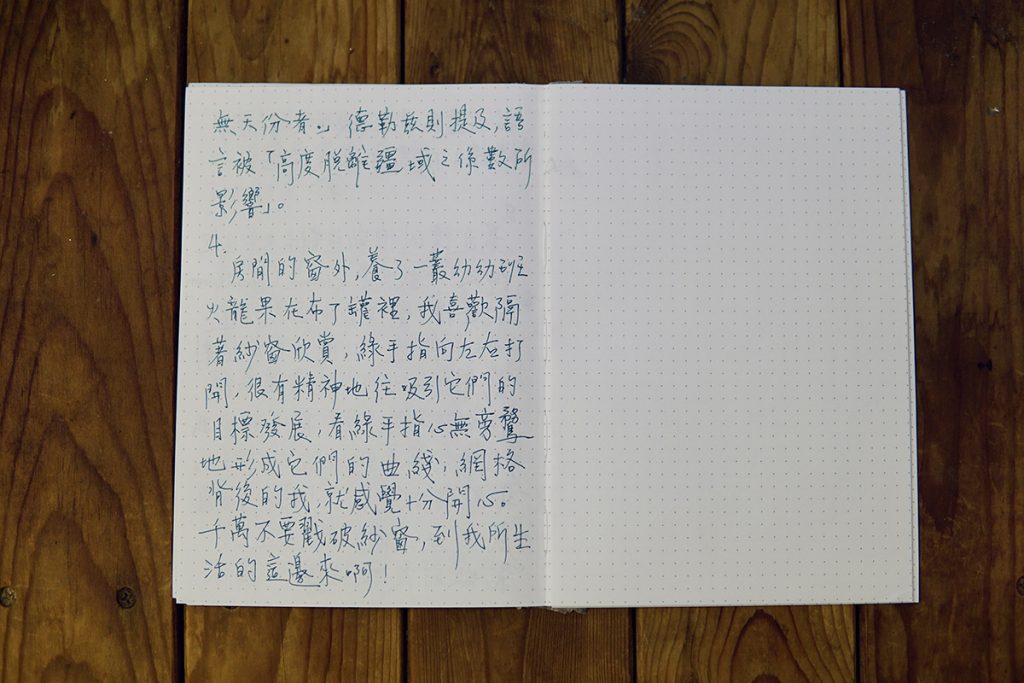 無天份者。」德勒茲則提及,語
言被「高度脫離疆域之係數所
影響」。
4.
房間的窗外,養了一叢幼幼班
火龍果在布丁罐裡,我喜歡隔
著紗窗欣賞,綠手指向左右打
開,很有精神地往吸引它們的
目標發展,看綠手指心無旁鶩
地形成它們的曲綫;網格
背後的我,就感覺十分開心。
千萬不要戳破紗窗,到我所生
活的這邊來啊!